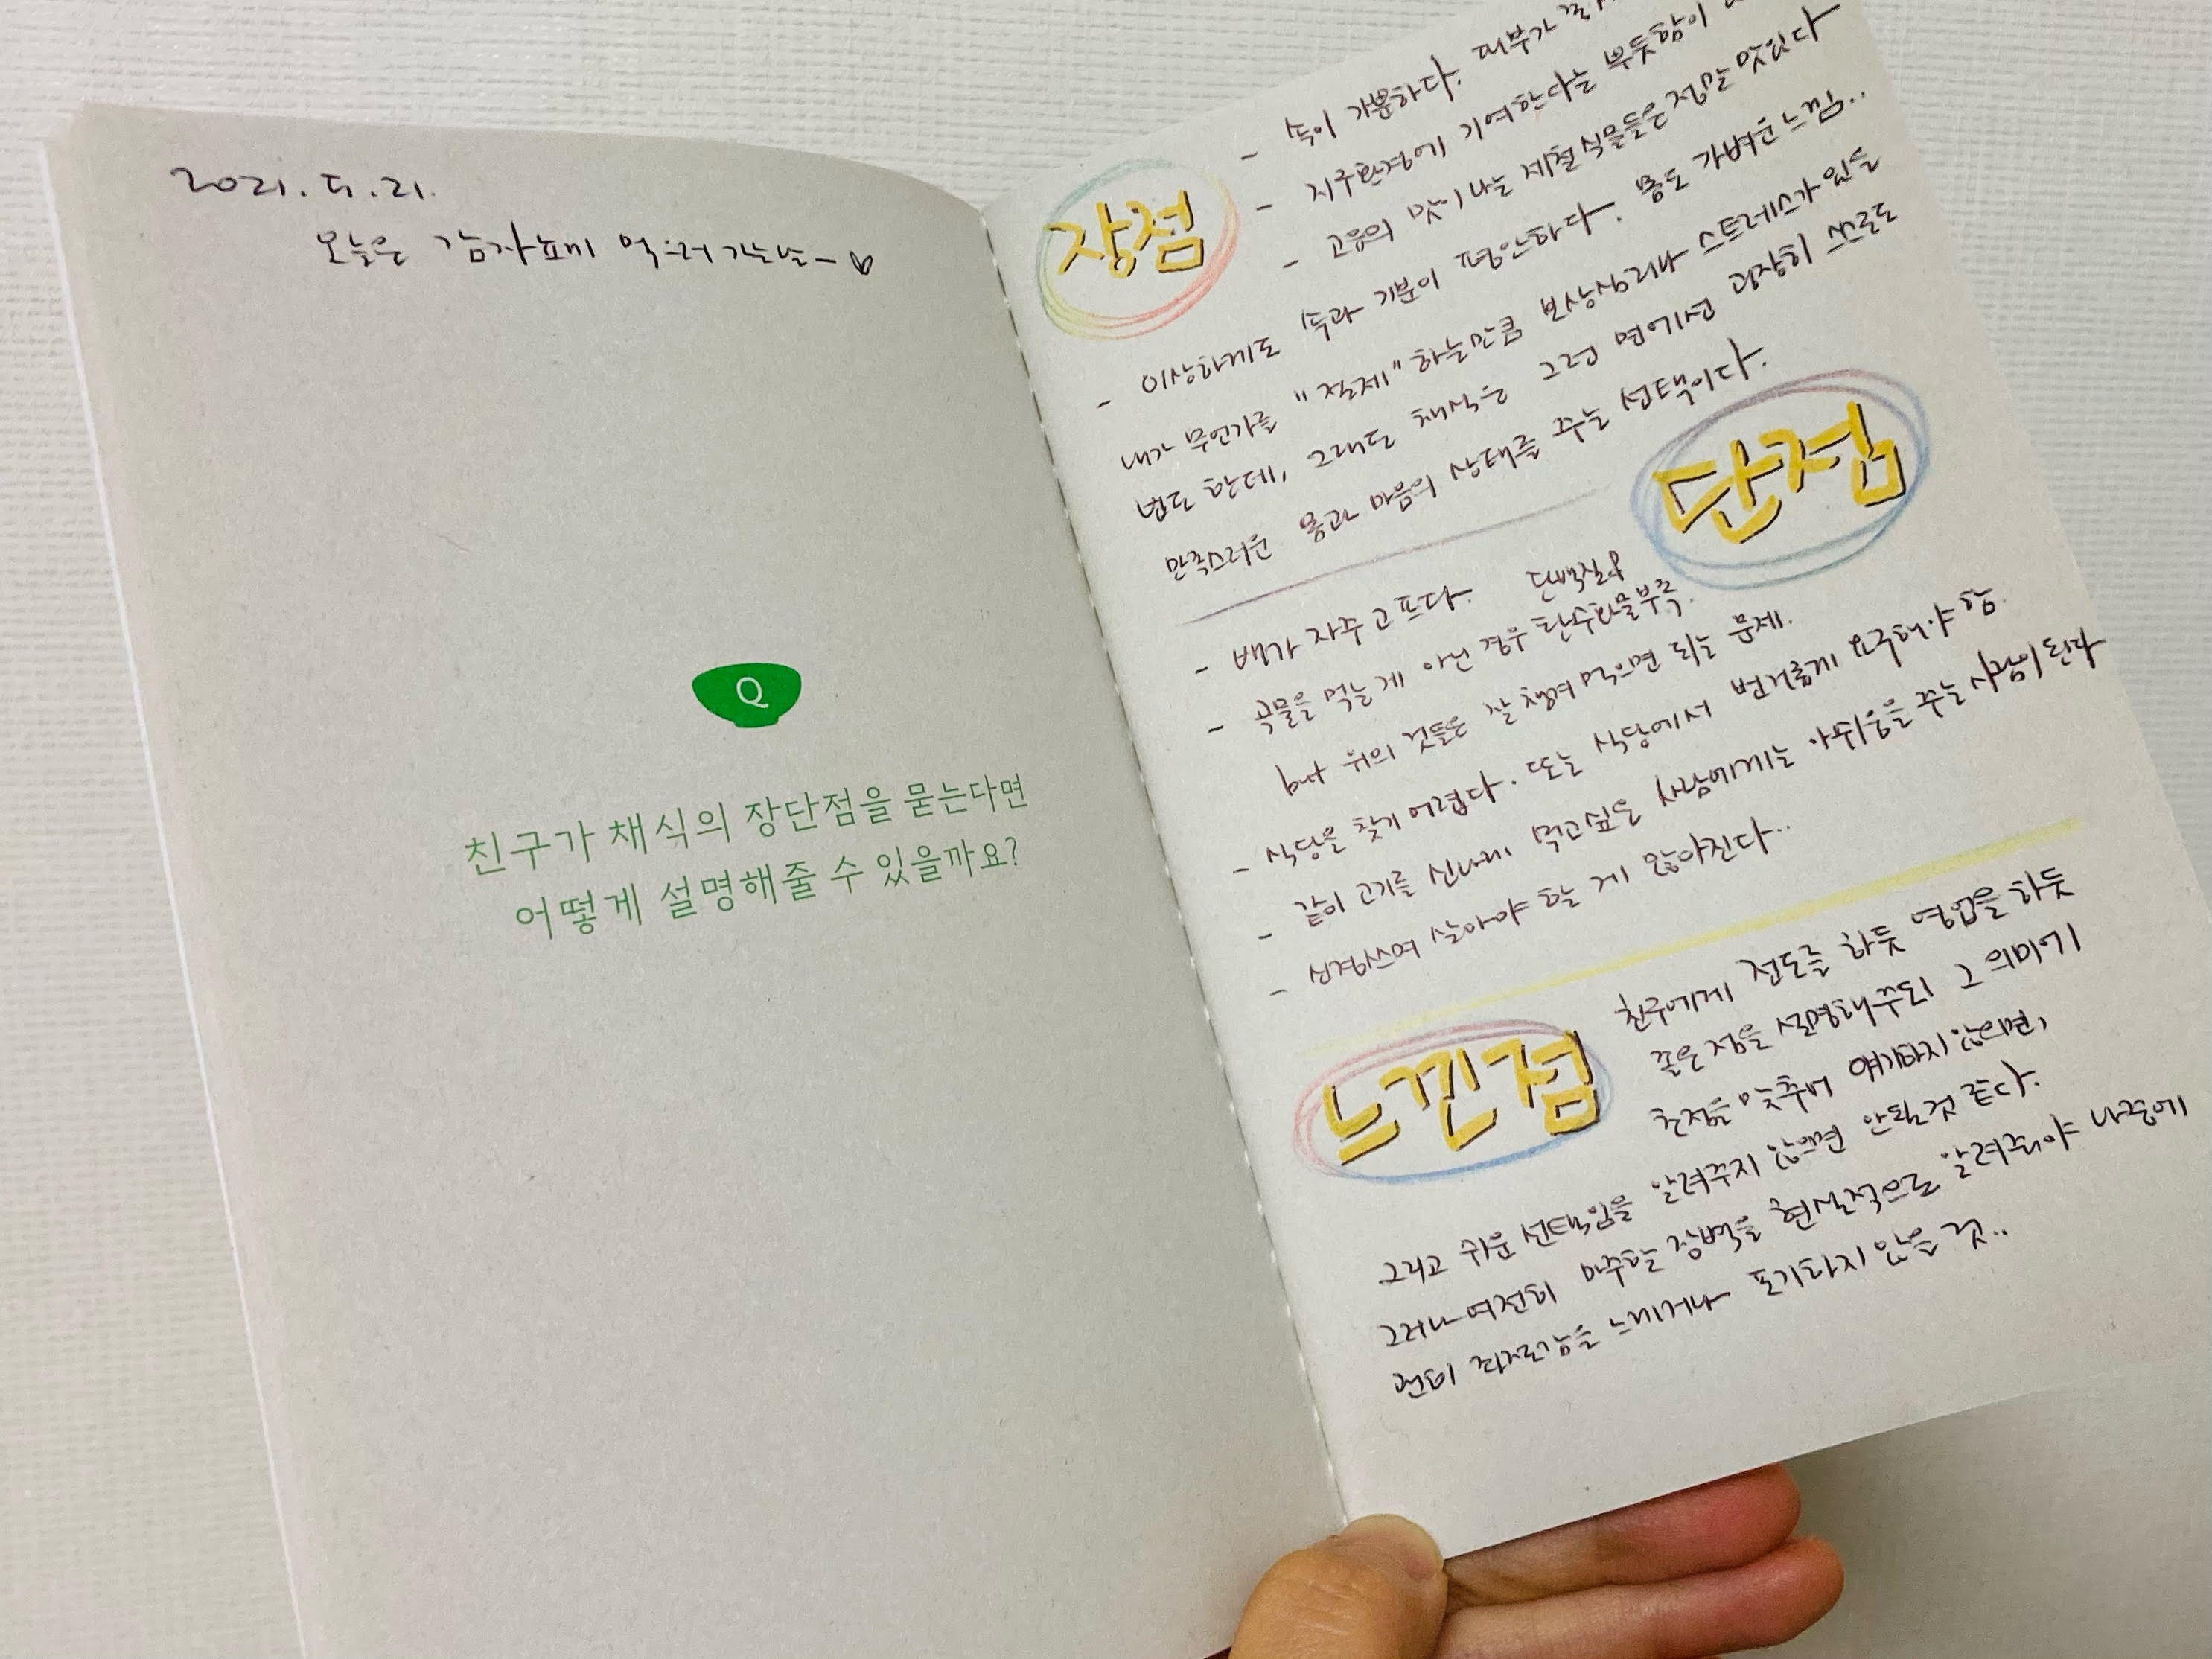 2021. 5. 21.
오늘은 감자뇨끼 먹으러 가는 날~♡
Q
친구가 채식의 장단점을 묻는다면
어떻게 설명해줄 수 있을까요?
장점
- 속이 가뿐하다. 피부가
- 지구환경에 기여한다는 뿌듯함이
- 고유의 맛이 나는 제철 식물들은 정말 맛있다
- 이상하게도 속과 기분이 편안하다. 몸도 가벼운 느낌..
내가 무언가를 "절제" 하는만큼 보상심리나 스트레스가 있을
법도 한데, 그래도 채식은 그런 면에선 굉장히 스스로도
만족스러운 몸과 마음의 상태를 주는 선택이다.
단점
- 배가 자주 고프다. 단백질&
- 곡물을 먹는 게 아닌 경우 탄수화물 부족.
but 위의 것들은 잘 챙겨 먹으면 되는 문제.
- 식당을 찾기 어렵다. 또는 식당에서 번거롭게 요구해야 함.
- 같이 고기를 신나게 먹고싶은 사람에게는 아쉬움을 주는 사람이 된다
- 신경쓰며 살아야 할 게 많아진다...
느낀점
친구에게 전도를 하듯 영업을 하듯
좋은 점을 설명해주되 그 의미에
초점을 맞추어 얘기하지 않으면,
그리고 쉬운 선택임을 알려주지 않으면 안될 것 같다.
그러나 여전히 마주할 장벽을 현실적으로 알려줘야 나중에
괜히 좌절감을 느끼거나 포기하지 않을 것..